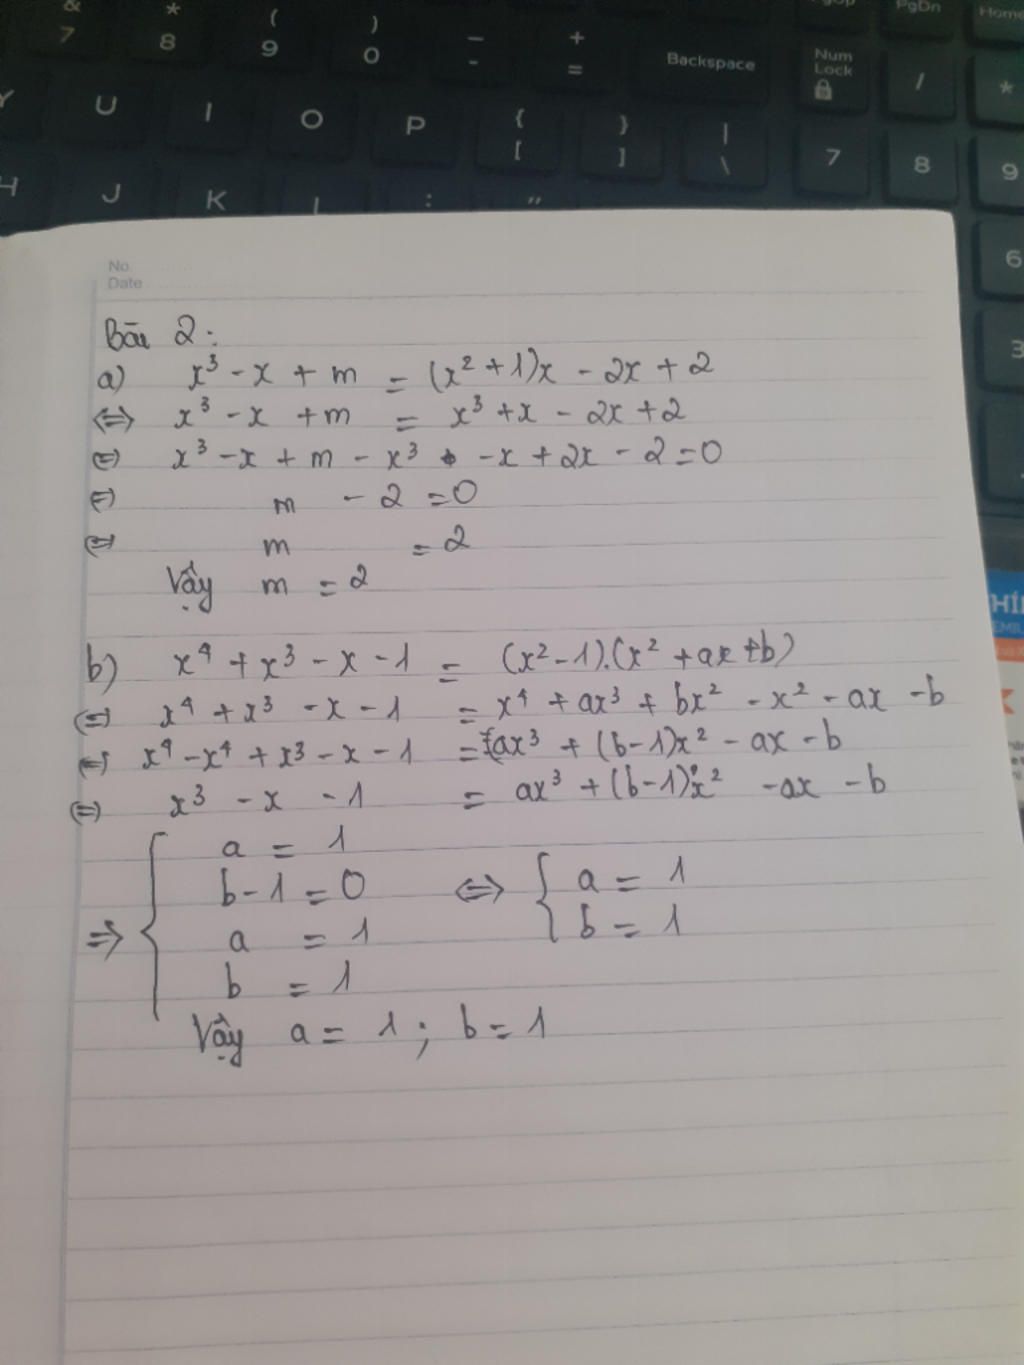 & * ( ) _ + Backspace PgUp PgDn Home
7 8 9 0 - = Num Lock / *
Y U I O P { [ } ] | \ 7 8 9
H J K L : "
6
3
No.
Date
Bài 2:
a) x³ - x + m = (x² + 1)x - 2x + 2
⇔ x³ - x + m = x³ + x - 2x + 2
⇔ x³ - x + m - x³ - x + 2x - 2 = 0
⇔ m - 2 = 0
⇔ m = 2
Vậy m = 2
b) x⁴ + x³ - x - 1 = (x² - 1).(x² + ax + b)
⇔ x⁴ + x³ - x - 1 = x⁴ + ax³ + bx² - x² - ax - b
⇔ x⁴ - x⁴ + x³ - x - 1 = ax³ + (b-1)x² - ax - b
⇔ x³ - x - 1 = ax³ + (b-1)x² - ax - b
⇒ { a = 1
b - 1 = 0 ⇔ { a = 1
a = 1 b = 1
b = 1
Vậy a = 1 ; b = 1